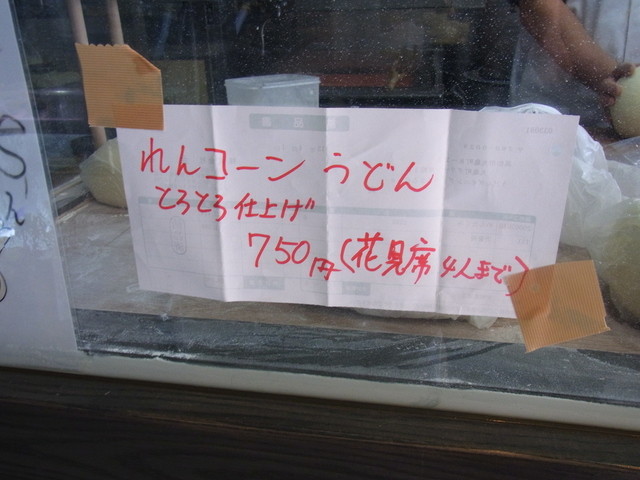 れんコーン うどん
とろとろ仕上げ
750円(花見席4人まで)